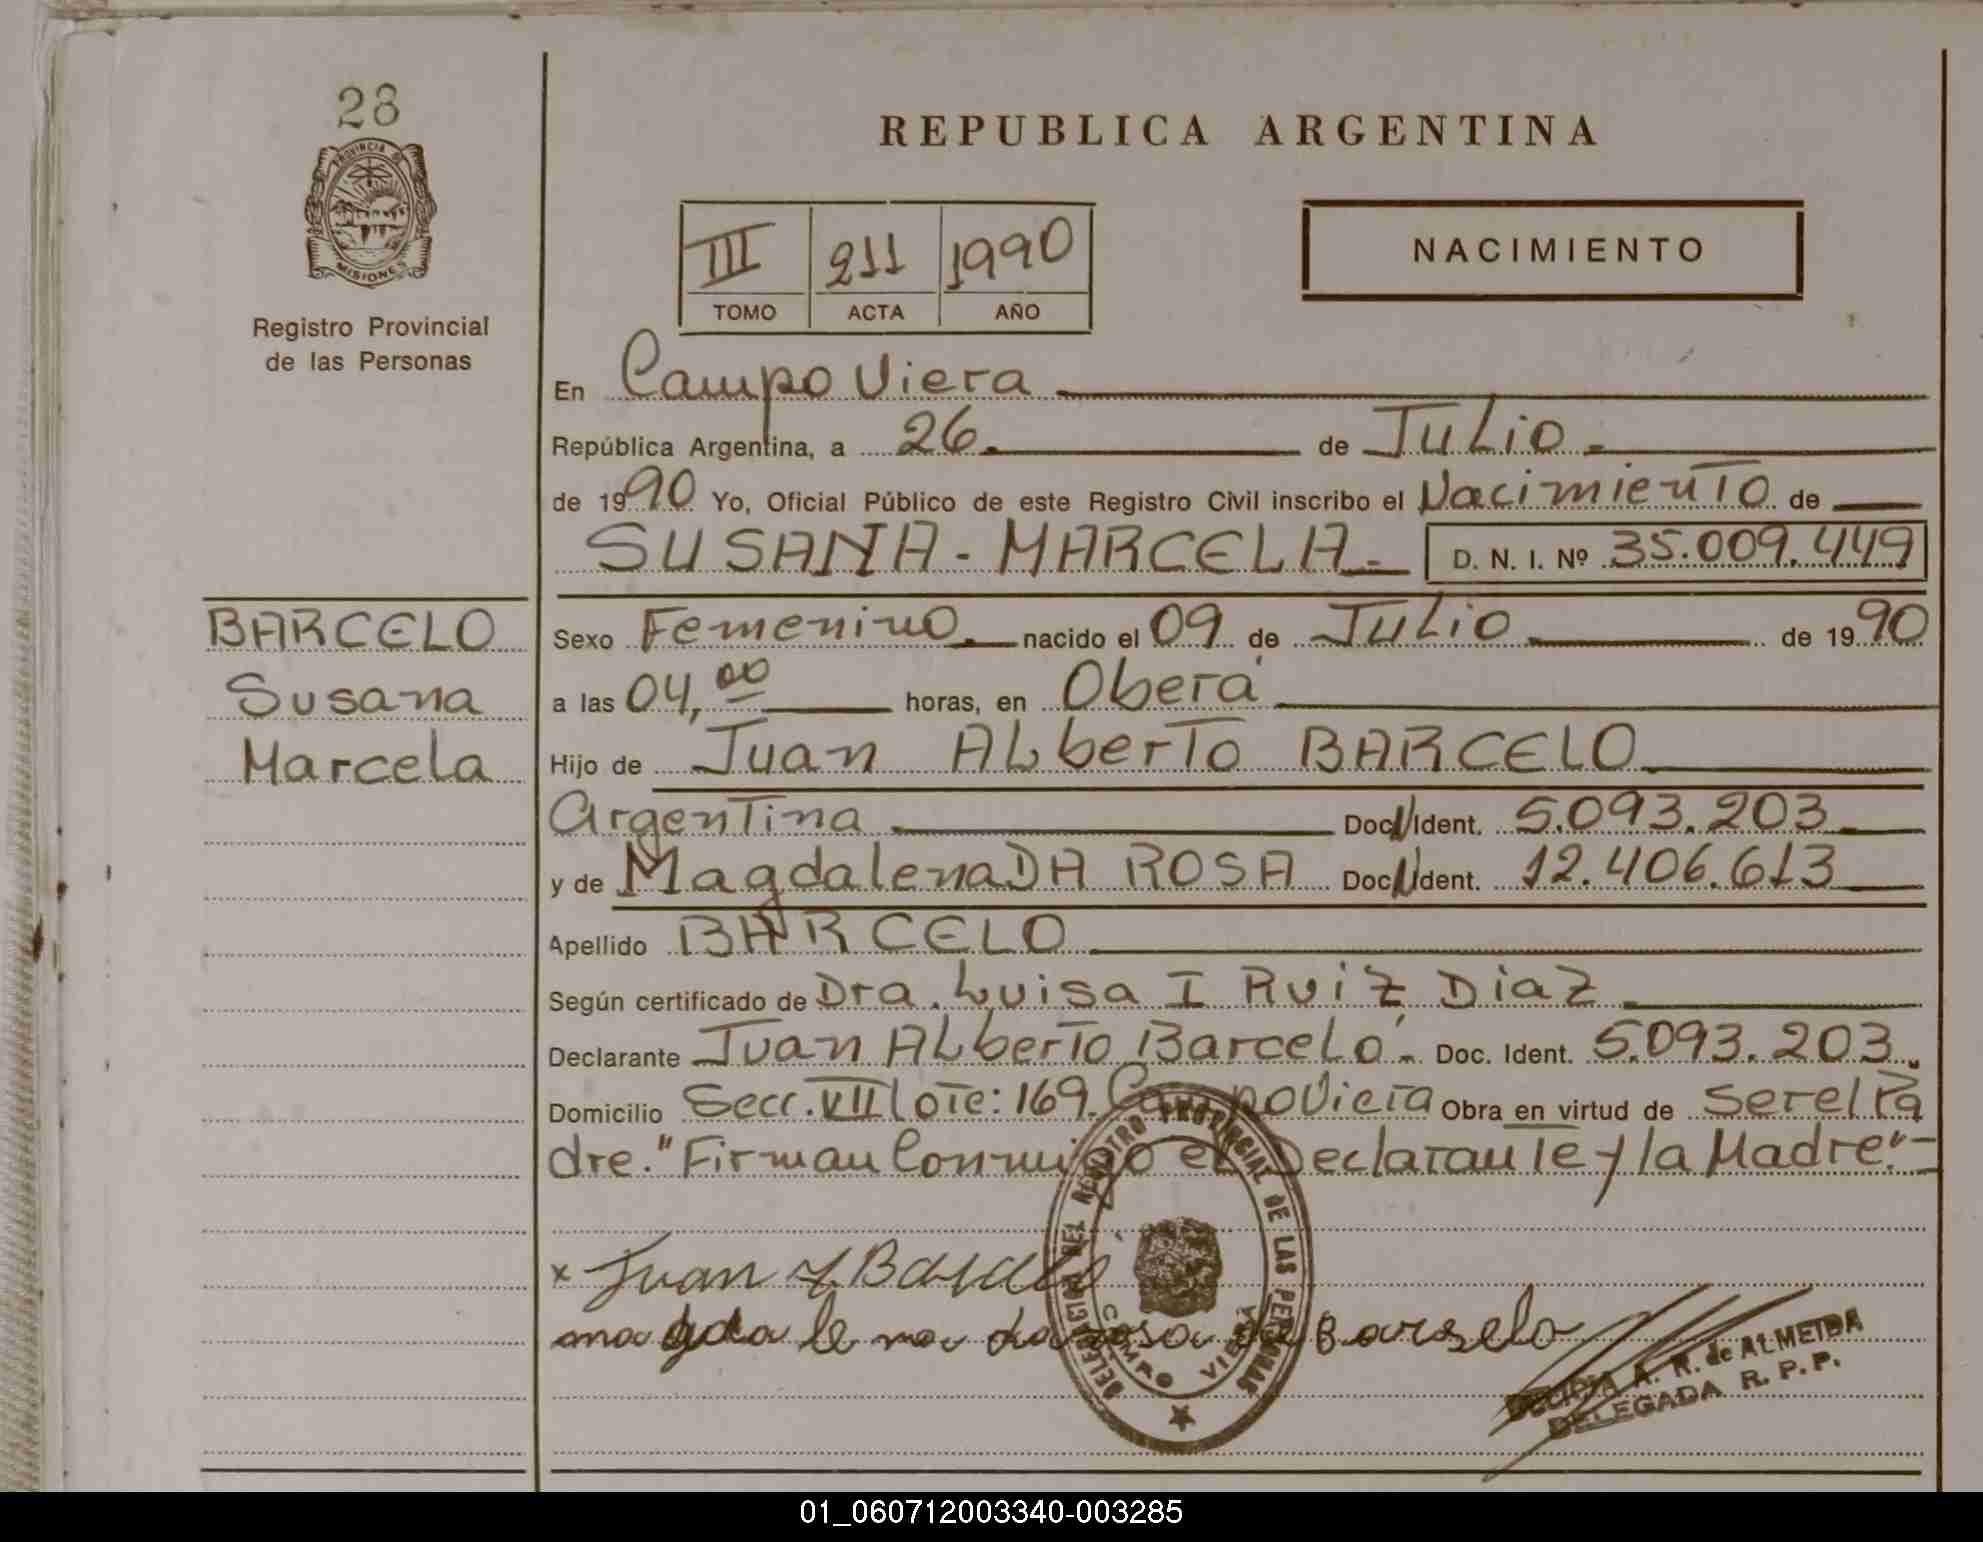 28
PROVINCIA DE
MISIONES
Registro Provincial
de las Personas
REPUBLICA ARGENTINA
III 211 1990
TOMO ACTA AÑO
NACIMIENTO
En Campo Viera
República Argentina, a 26. de Julio.
de 1990 Yo, Oficial Público de este Registro Civil inscribo el Nacimiento de
SUSANA - MARCELA.- D. N. I. Nº 35.009.449
BARCELO
Susana
Marcela
Sexo Femenino. nacido el 09 de Julio de 1990
a las 04,00 horas, en Oberá
Hijo de Juan Alberto BARCELO
Argentina Doc N Ident. 5.093.203
y de Magdalena DA ROSA Doc N Ident. 12.406.613
Apellido BARCELO
Según certificado de Dra. Luisa I Ruiz Diaz
Declarante Juan Alberto Barceló.- Doc. Ident. 5.093.203.
Domicilio Secc. VII Lote: 169. Campo Viera Obra en virtud de Ser el Pa
dre. "Firman Conmigo el Declarante y la Madre".-
x Juan A Barceló
magdalena da rosa de Barselo
DELEGACION DEL REGISTRO PROVINCIAL DE LAS PERSONAS
CAMPO VIERA
DELICIA A. R. de ALMEIDA
DELEGADA R. P. P.
01_060712003340-003285